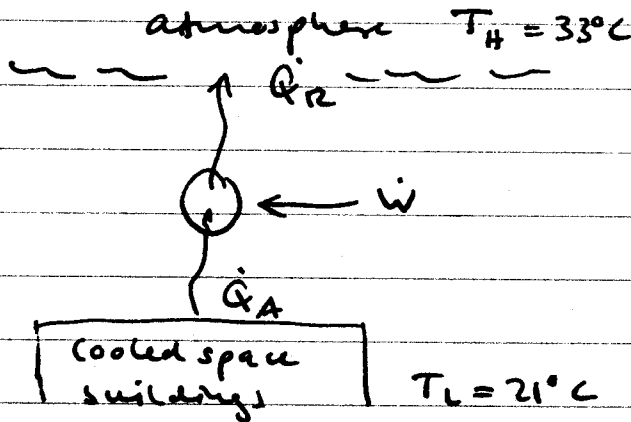 atmosphere T_H = 33°C
Q̇_R
Ẇ
Q̇_A
cooled space
buildings T_L = 21°C